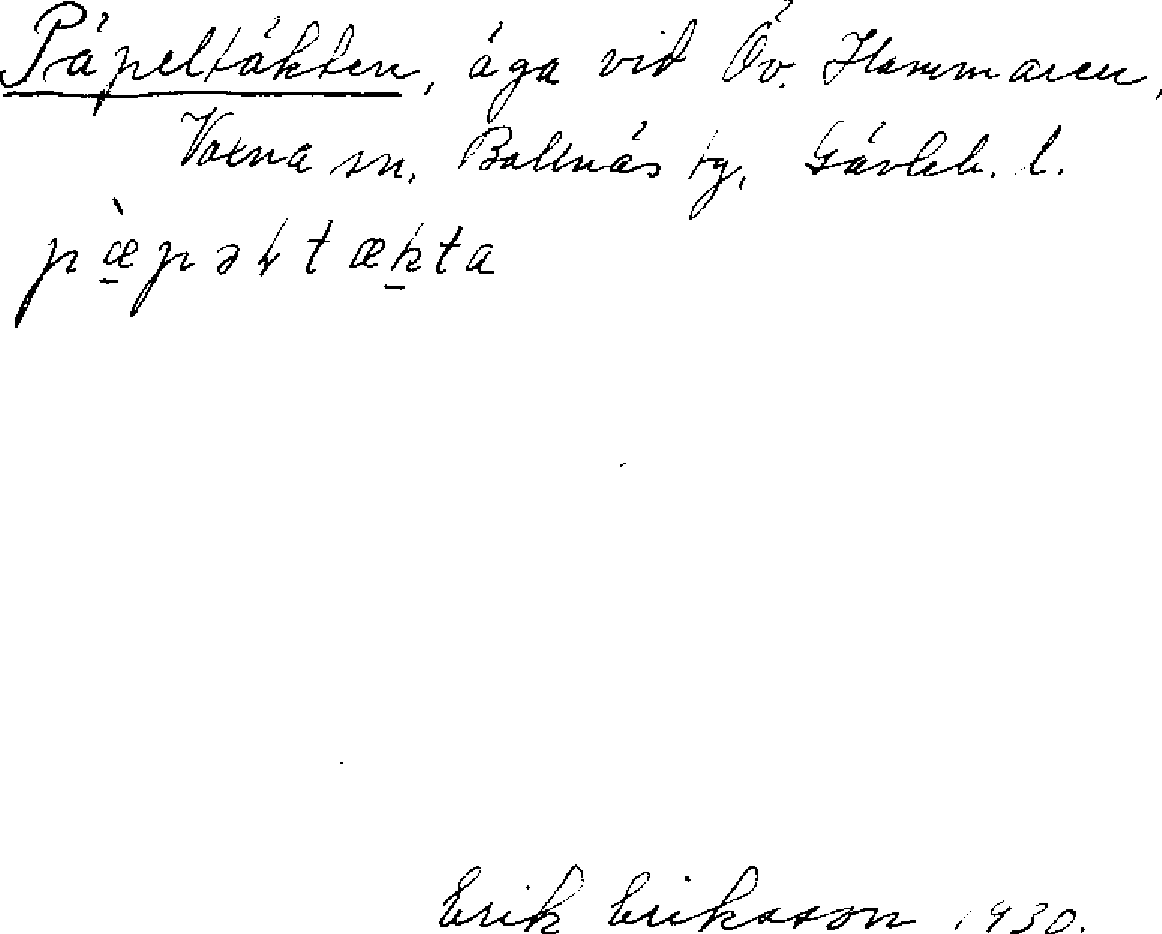 Päpeltäkten, äga vid Öv. Hammaren,
Voxna sn. Bollnäs tg. Gävleb. l.
pæ̠̀pəɫtæk̠ta
Erik Eriksson 1930.